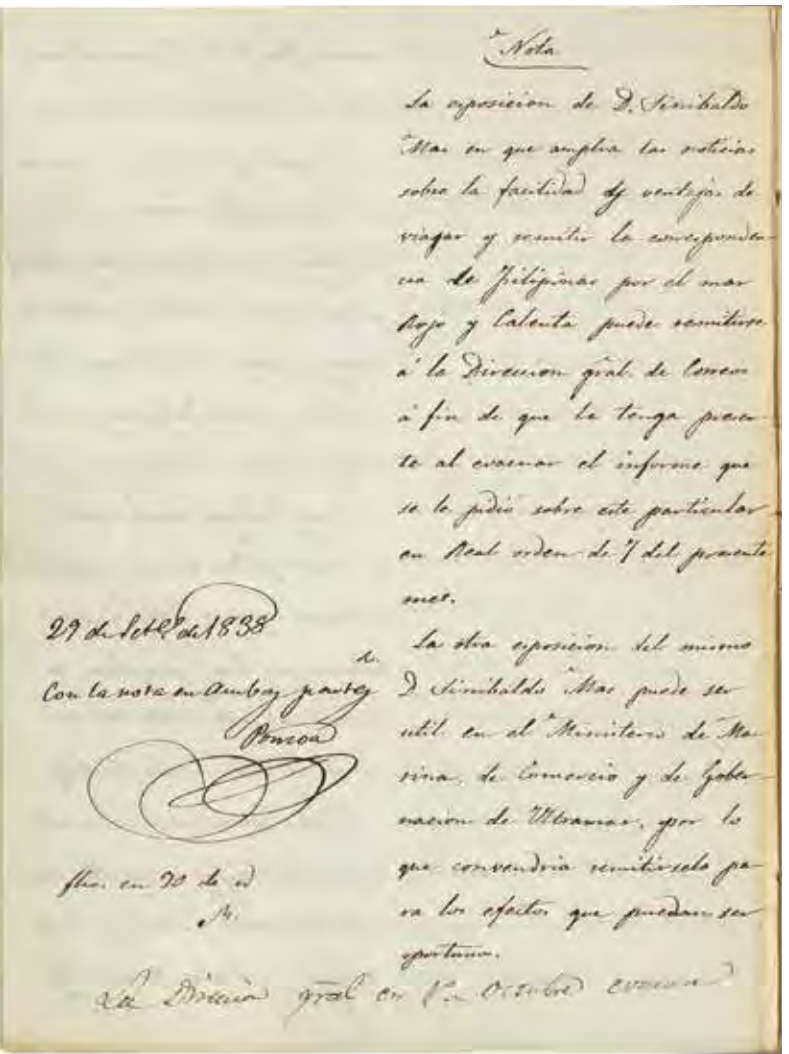 Nota
La esposicion de D. Sinibaldo
Mas en que amplia las noticias
sobre la facilidad y ventajas de
viagar y remitir la corresponden-
cia de Filipinas por el mar
Rojo y Calcuta puede remitirse
á la Direccion gral. de Correos
á fin de que la tenga presen-
te al evacuar el informe que
se le pidió sobre este particular
en Real orden de 7 del presente
mes.
La otra esposicion del mismo
D Sinibaldo Mas puede ser
util en el Ministerio de Ma-
rina, de Comercio y de Gober-
nacion de Ultramar, por lo
que convendria remitirsela pa-
ra los efectos que puedan ser
oportunos.
29 de Setbe de 1838
Con la nota en ambas partes
Ponzoa
fho. en 30 de id
La Direccion gral en Octubre